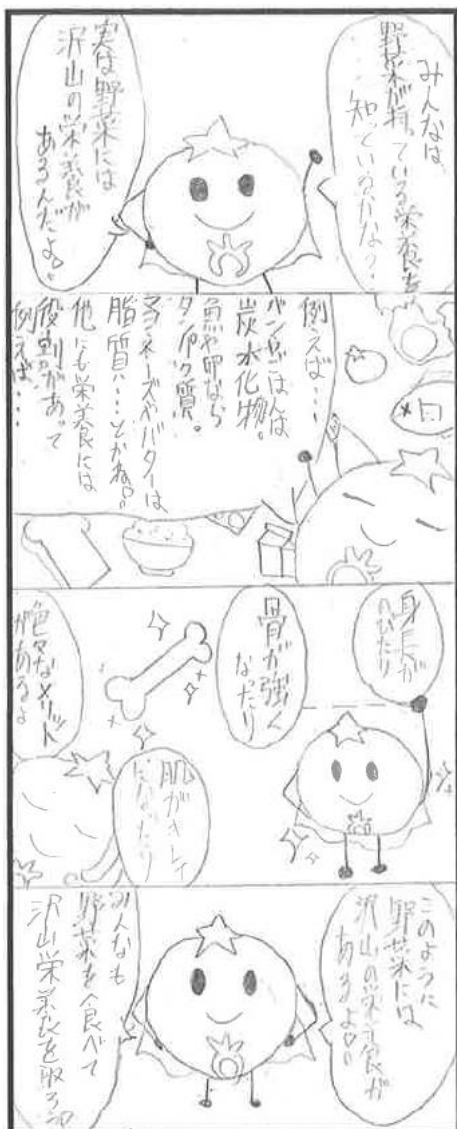 みんなは、
野菜が持っている栄養を
知っているかな?
実は野菜には
沢山の栄養が
あるんだよ
例えば…
パンやごはんは
炭水化物。
魚や卵なら
タンパク質。
マヨネーズやバターは
脂質…とかね
他にも栄養には
役割があって
例えば…
身長が
のびたり
骨が強く
なったり
肌がキレイ
になったり
色々なメリット
があるよ
このように
野菜には
沢山の栄養が
あるよ
みんなも
野菜を食べて
沢山栄養を取ろう